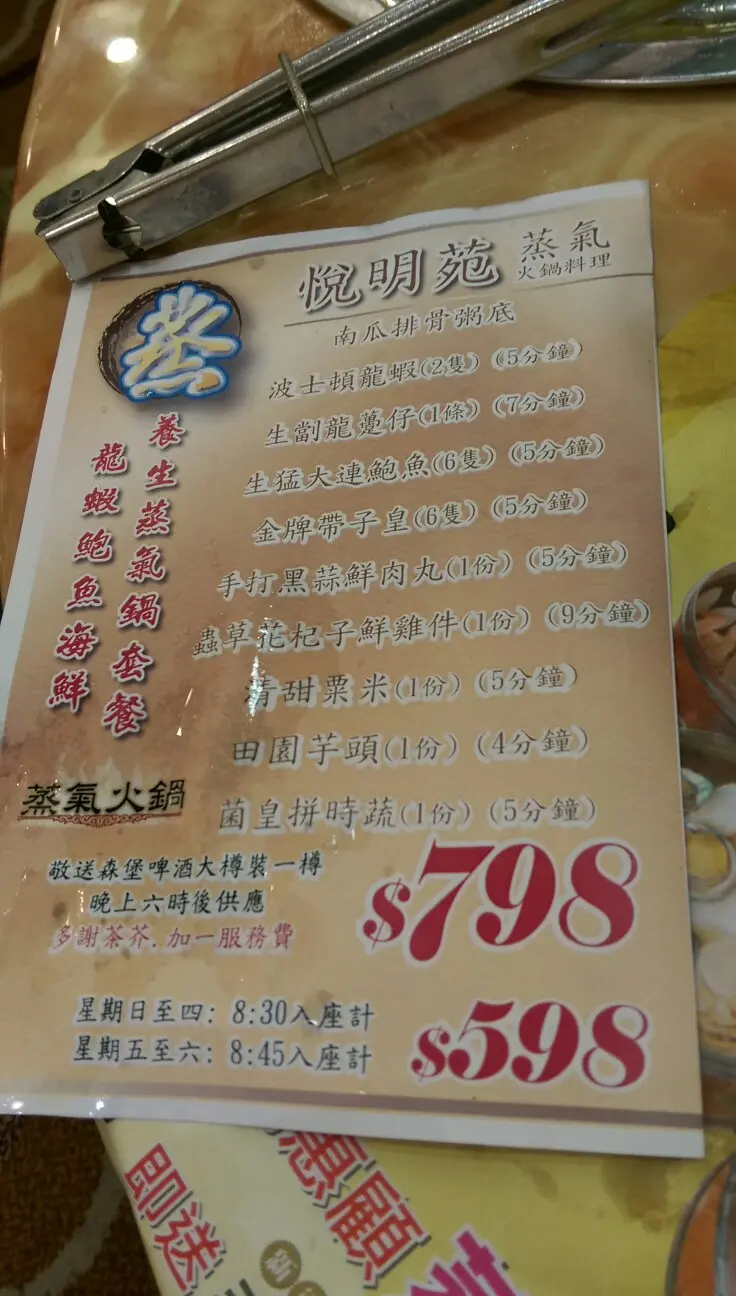 悅明苑
蒸氣
火鍋料理
蒸
南瓜排骨粥底
波士頓龍蝦(2隻) (5分鐘)
生劏龍躉仔(1條) (7分鐘)
生猛大連鮑魚(6隻) (5分鐘)
金牌帶子皇(6隻) (5分鐘)
手打黑蒜鮮肉丸(1份) (5分鐘)
蟲草花杞子鮮雞件(1份) (9分鐘)
清甜粟米(1份) (5分鐘)
田園芋頭(1份) (4分鐘)
菌皇拼時蔬(1份) (5分鐘)
養生蒸氣鍋套餐
龍蝦鮑魚海鮮
蒸氣火鍋
敬送森堡啤酒大樽裝一樽
晚上六時後供應
多謝茶芥.加一服務費
$798
星期日至四: 8:30入座計
星期五至六: 8:45入座計
$598
惠顧
即送